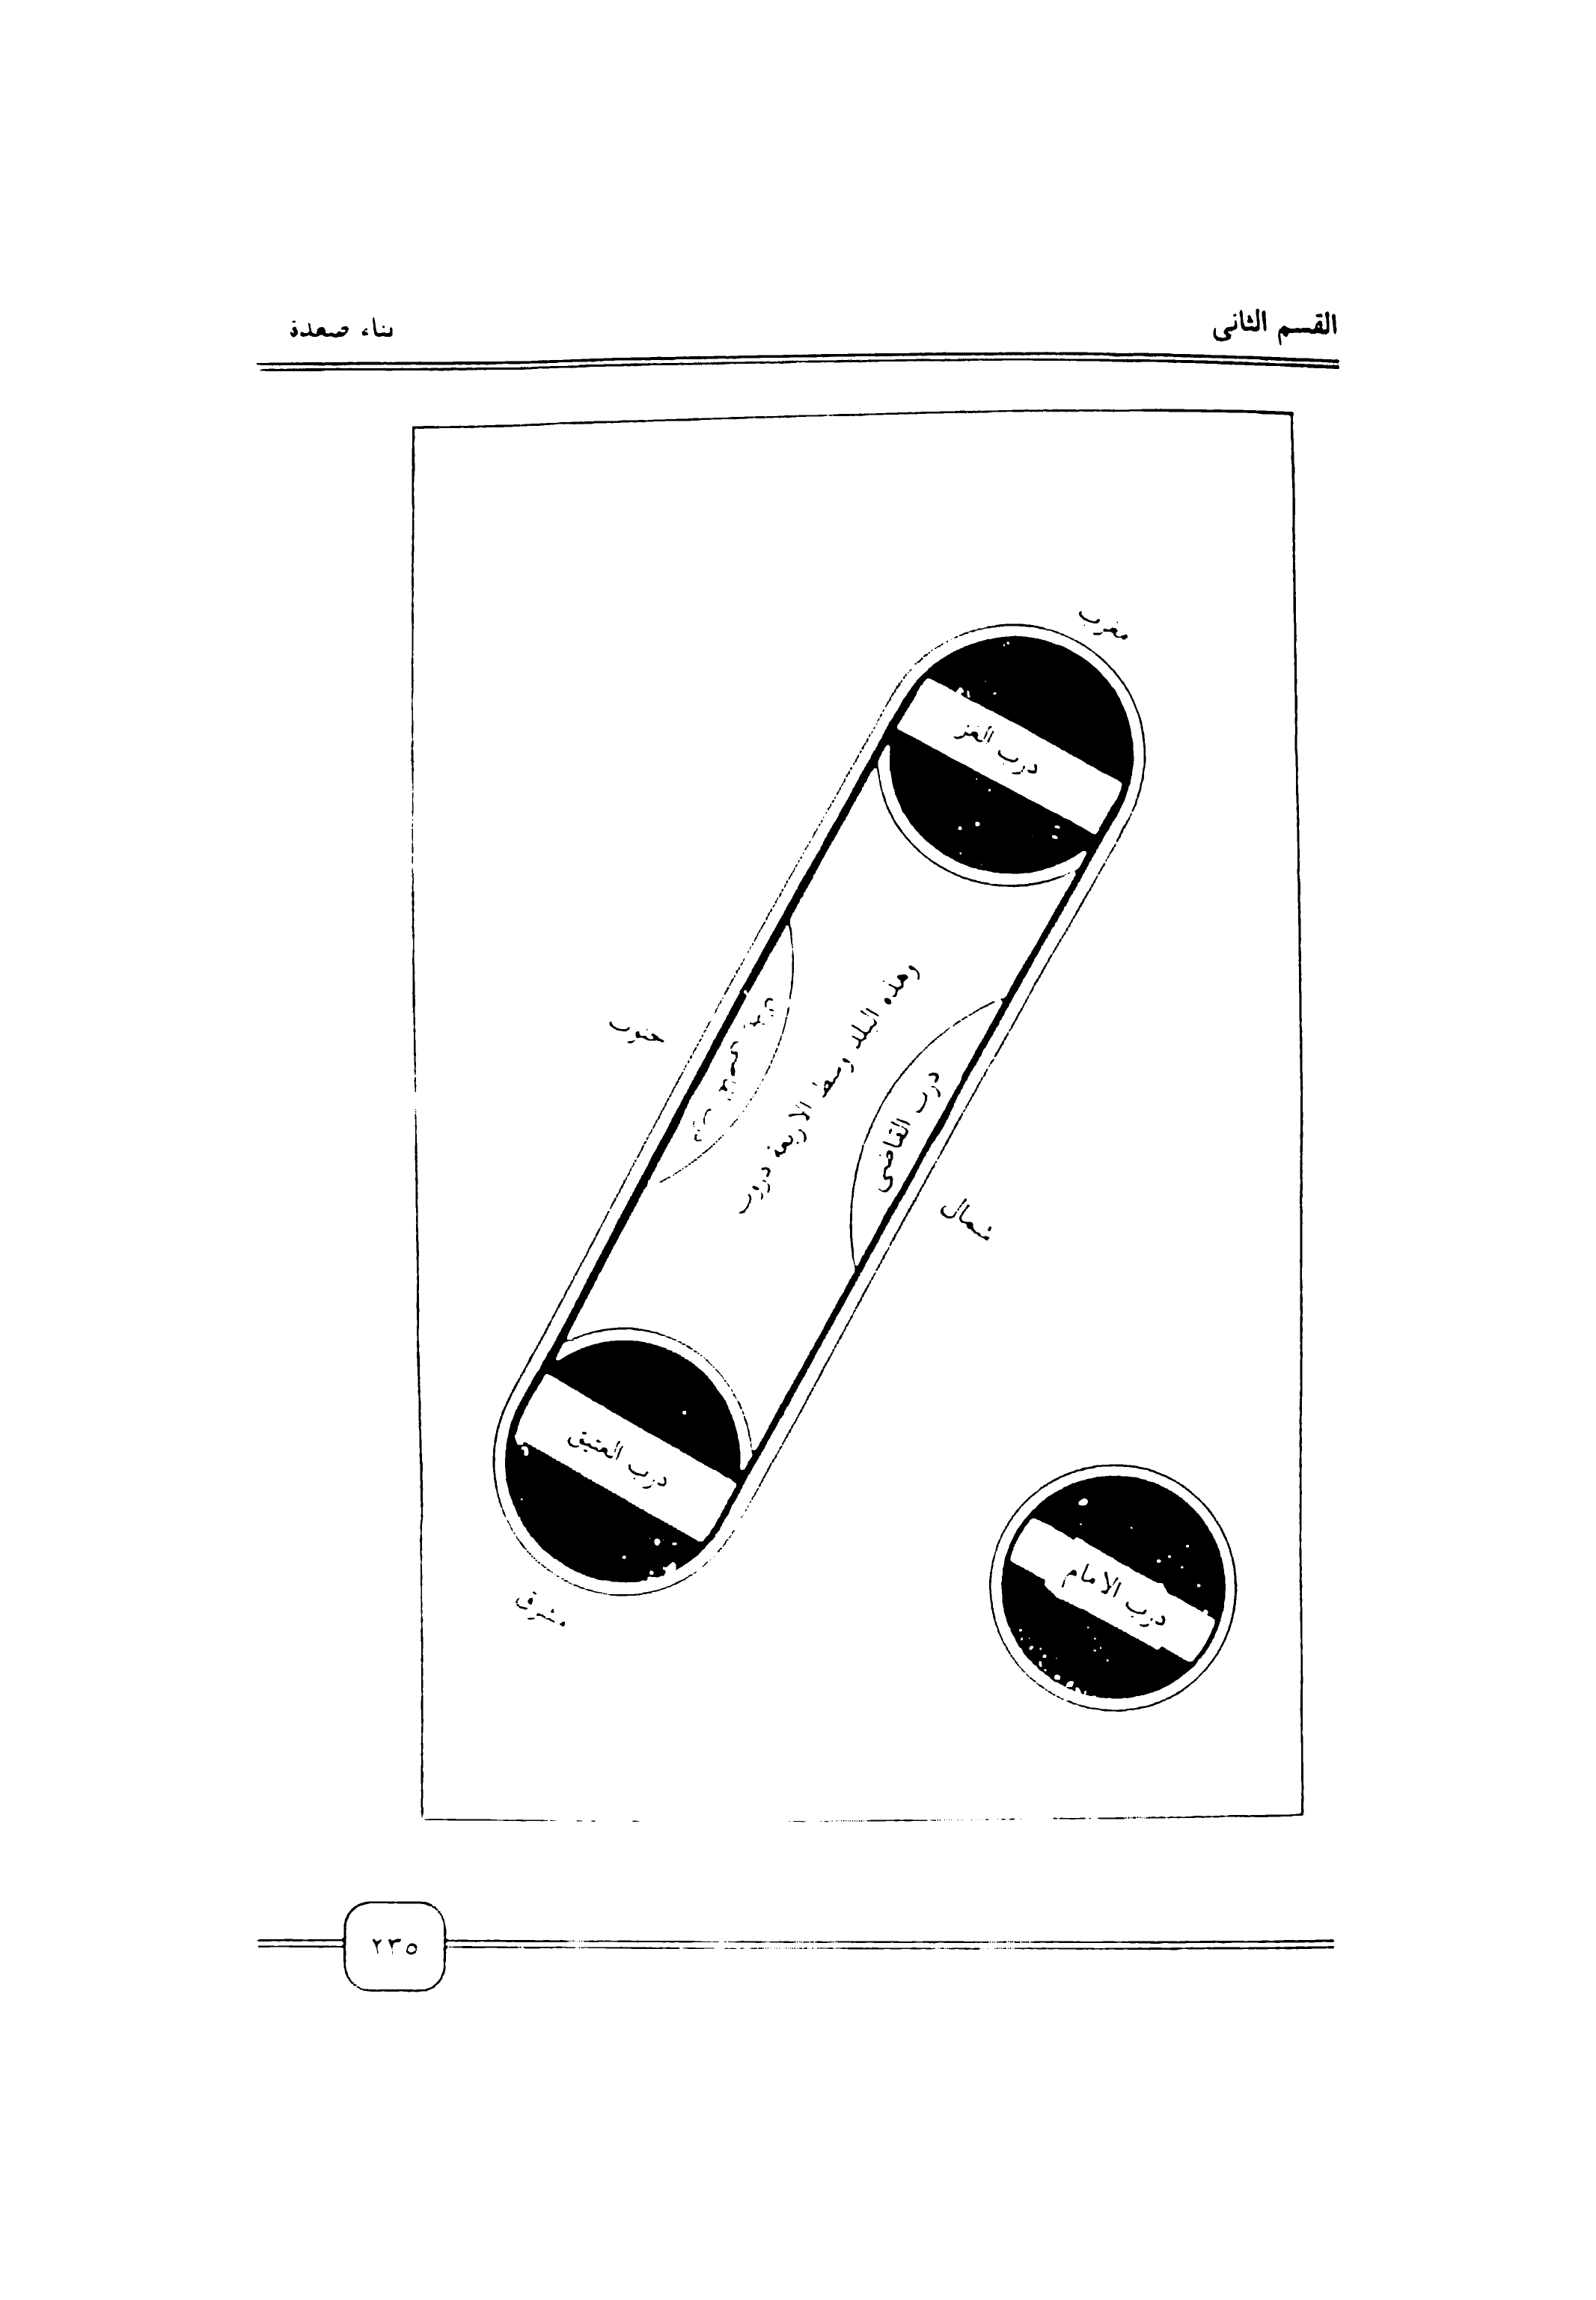 القسم الثاني
بناء صعدة
مغرب
درب الغز
جنوب
وهذه البلد وسط الاربعة دروب
درب القاضي
شمال
درب العتيق
مشرق
درب الامام
٢٣٥